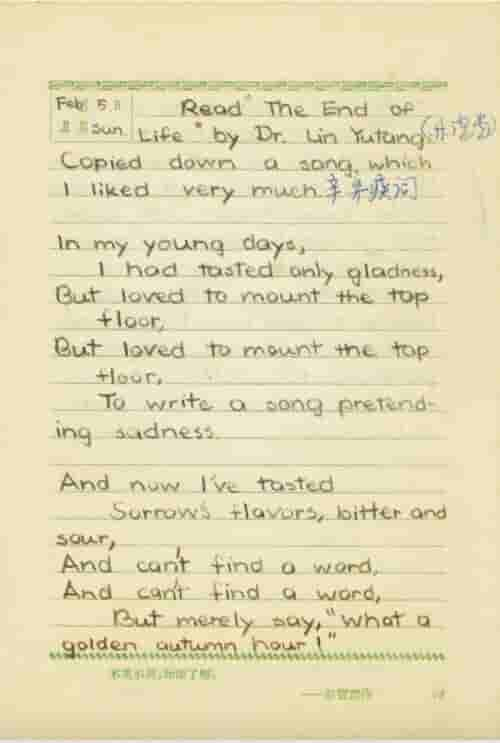 Feb 5 Read "The End of
Sun Life" by Dr. Lin Yutang. (林语堂)
Copied down a song, which
I liked very much 辛弃疾词
In my young days,
I had tasted only gladness,
But loved to mount the top
floor,
But loved to mount the top
floor,
To write a song pretend-
ing sadness.
And now I've tasted
Sorrow's flavors, bitter and
sour,
And can't find a word,
And can't find a word,
But merely say, "What a
golden autumn hour!"